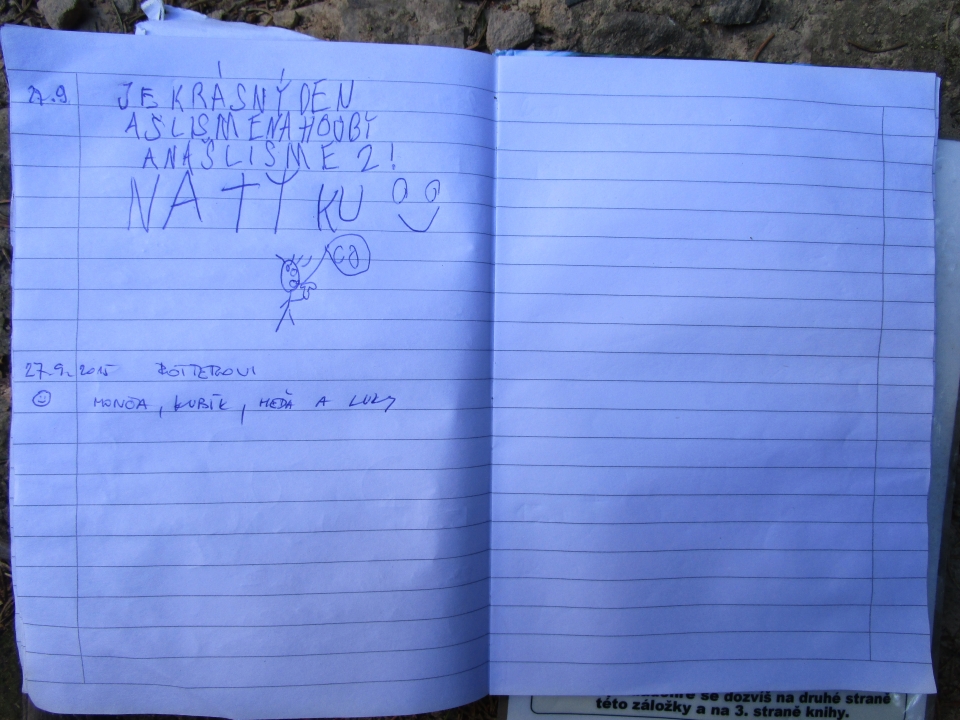 27.9. JE KRÁSNÝ DEN
A ŠLI SME NA HOUBY
A NAŠLI SME 2!
NA TY KU
27.9.2015
MONČA, KUBÍK, MEĎA A LUKY
se dozvíš na druhé straně
této záložky a na 3. straně knihy.